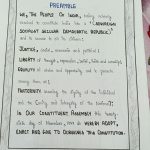 PREAMBLE
WE, THE PEOPLE OF INDIA, having solemnly
resolved to constitute India into a "[SOVEREIGN
SOCIALIST SECULAR DEMOCRATIC REPUBLIC]"
and to secure to all its citizens:
JUSTICE, social, economic and political;
LIBERTY of thought, expression, belief, faith and worship;
EQUALITY of status and opportunity; and to promote
among them all;
FRATERNITY assuring the dignity of the Individual
and the Unity and Integrity of the
IN OUR CONSTITUENT ASSEMBLY this twenty-
sixth day of November, 1949 do HEREBY ADOPT,
ENACT AND GIVE TO OURSELVES THIS CONSTITUTION.